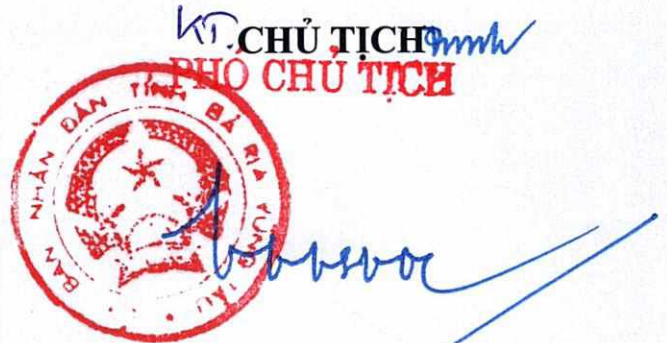 KT. CHỦ TỊCH
PHÓ CHỦ TỊCH
BAN NHÂN DÂN TỈNH BÀ RỊA VŨNG TÀU